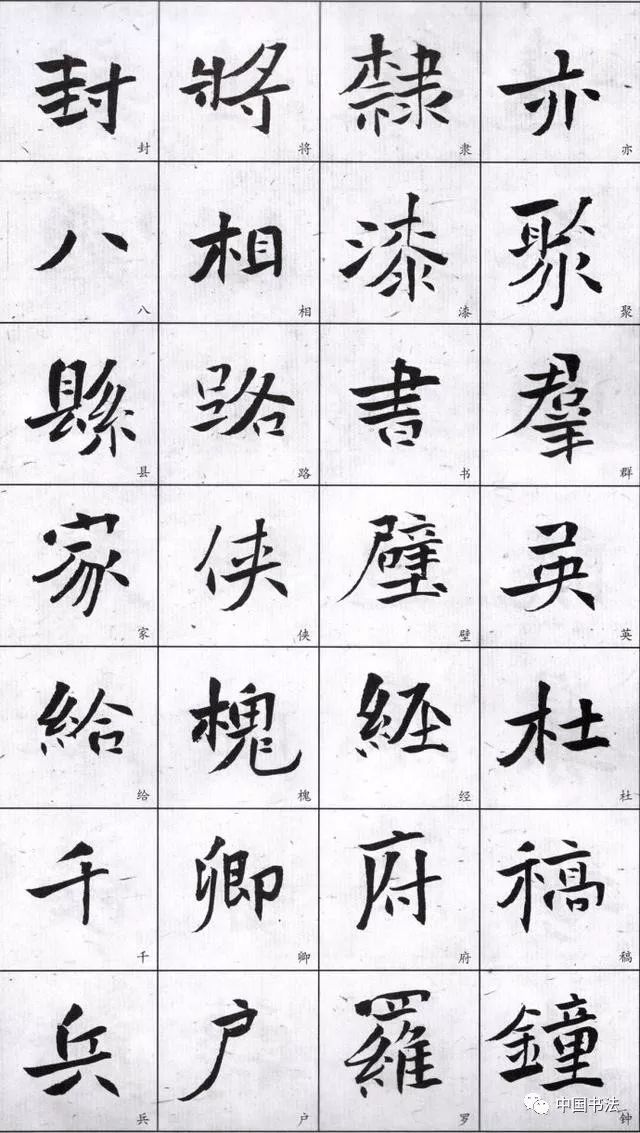 亦聚羣英杜稿鐘
亦聚群英杜稿钟
隸漆書壁經府羅
隶漆书壁经府罗
將相路侠槐卿户
将相路侠槐卿户
封八縣家給千兵
封八县家给千兵
中国书法